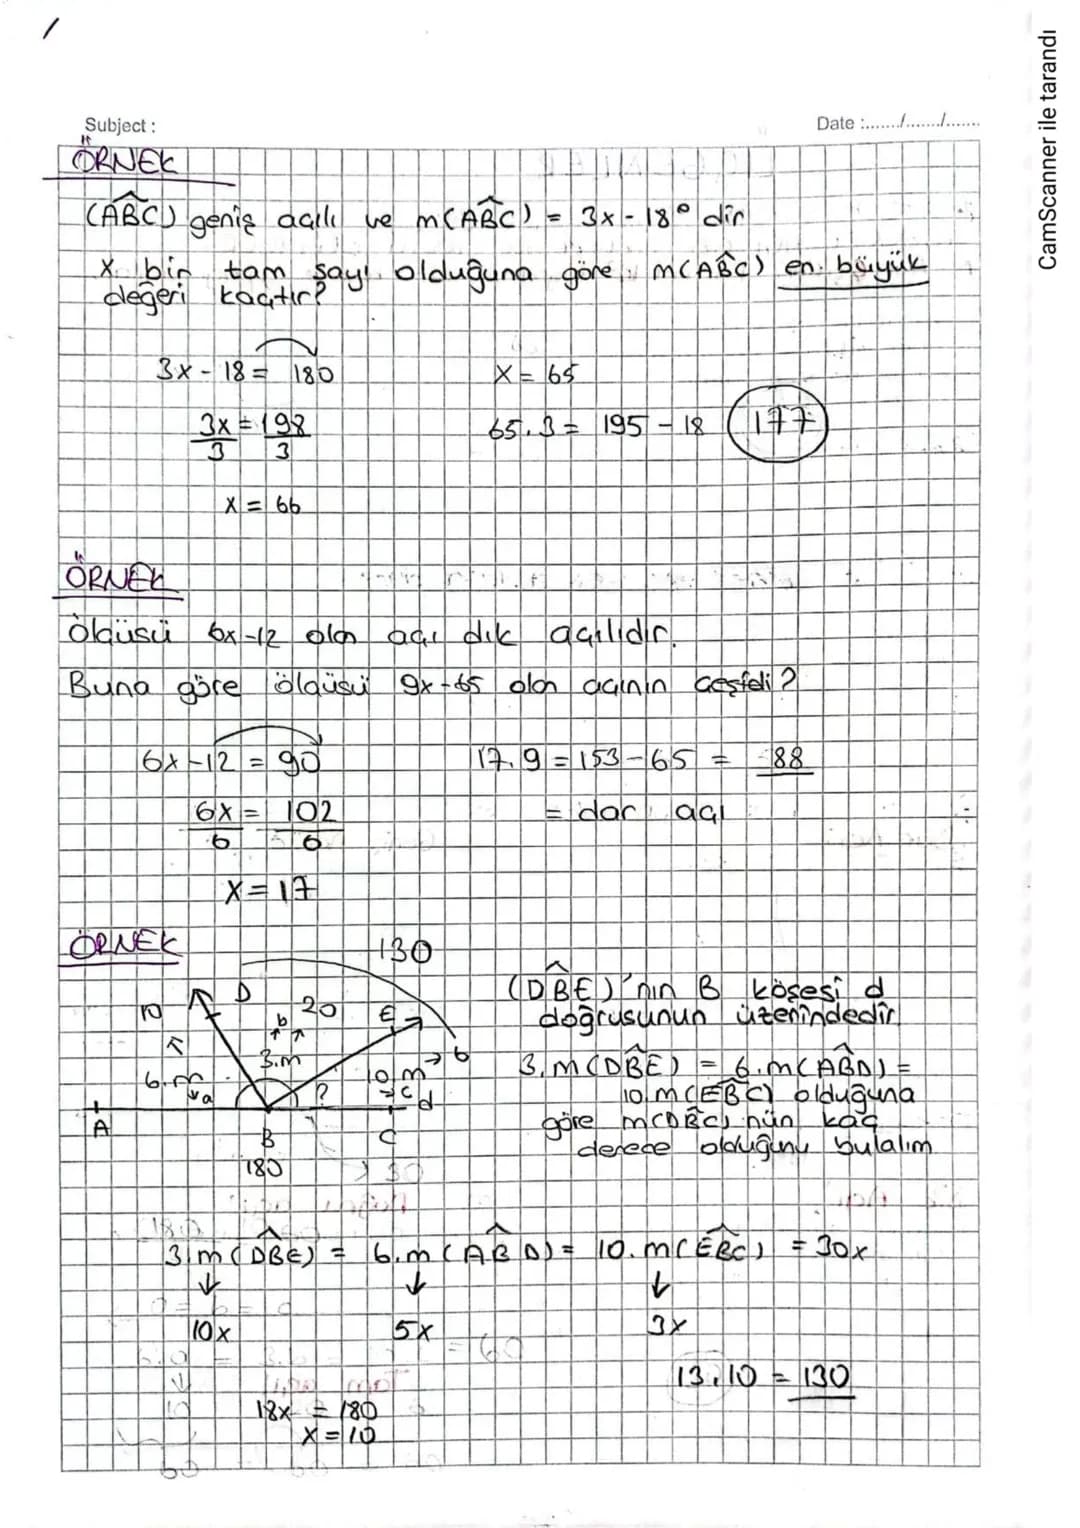 CamScanner ile tarandı
Subject :
Date :......./......./.......
ÖRNEK
(ABC) geniş açılı ve m(ABC) = 3x - 18° dir
x bir tam sayı olduğuna göre, m(ABC) en büyük
değeri kaçtır?
3x - 18 = 180
x = 65
3x = 198
3 3
65.3 = 195 - 18 177
x = 66
ÖRNEK
Ölçüsü 6x-12 olan açı dik açılıdır.
Buna göre ölçüsü 9x-65 olan açının çeşidi?
6x-12 = 90
17.9 = 153-65 = 88
6x = 102
6 6
= dar açı
x = 17
ÖRNEK
130
(DBE)'nın B köşesi d
doğrusunun üzerindedir
10 D b 20 E
3.m 6.m a ? 10 m → b
c d
A B C
180
3.m(DBE) = 6.m(ABD) =
10.m(EBC) olduğuna
göre m(DBC) nün kaç
derece olduğunu bulalım
3.m(DBE) = 6.m(ABD) = 10.m(EBC) = 30x
10x 5x 3x
13.10 = 130
18x = 180
x = 10